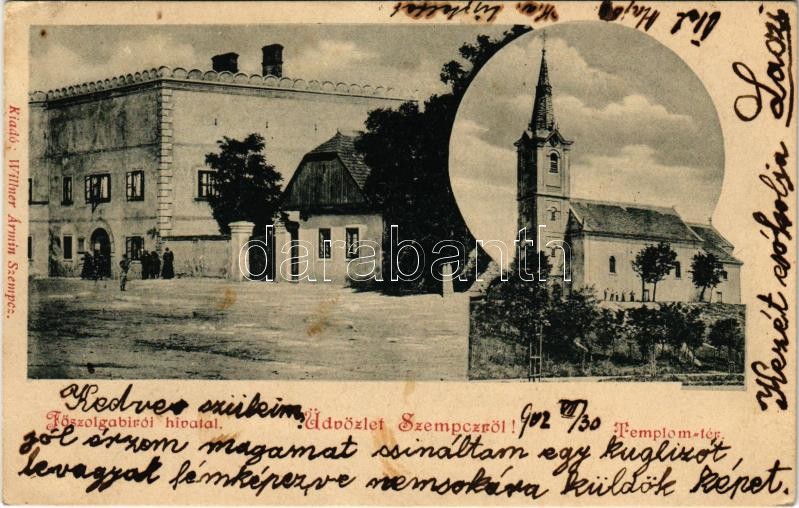 Kedves szüleim,
Főszolgabirói hivatal. Üdvözlet Szempczről! 902 VII/30 Templom-tér.
jól érzem magamat csináltam egy kuglizót
levagyok fémképezve nemsokára küldök képet.
Kezét csókolja Laszi
Kiadó: Willner Ármin Szempcz.
darabanth